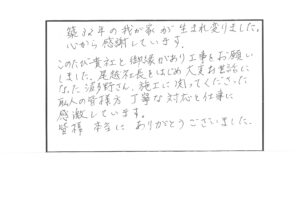 築32年の我が家が生まれ変りました。
心から感謝しています。
このたび貴社と御縁があり工事をお願い
しました。尾越社長をはじめ大変お世話に
なった波多野さん、施工に関ってくださった
職人の皆様方 丁寧な対応と仕事に
感激しています。
皆様 本当に ありがとうございました。